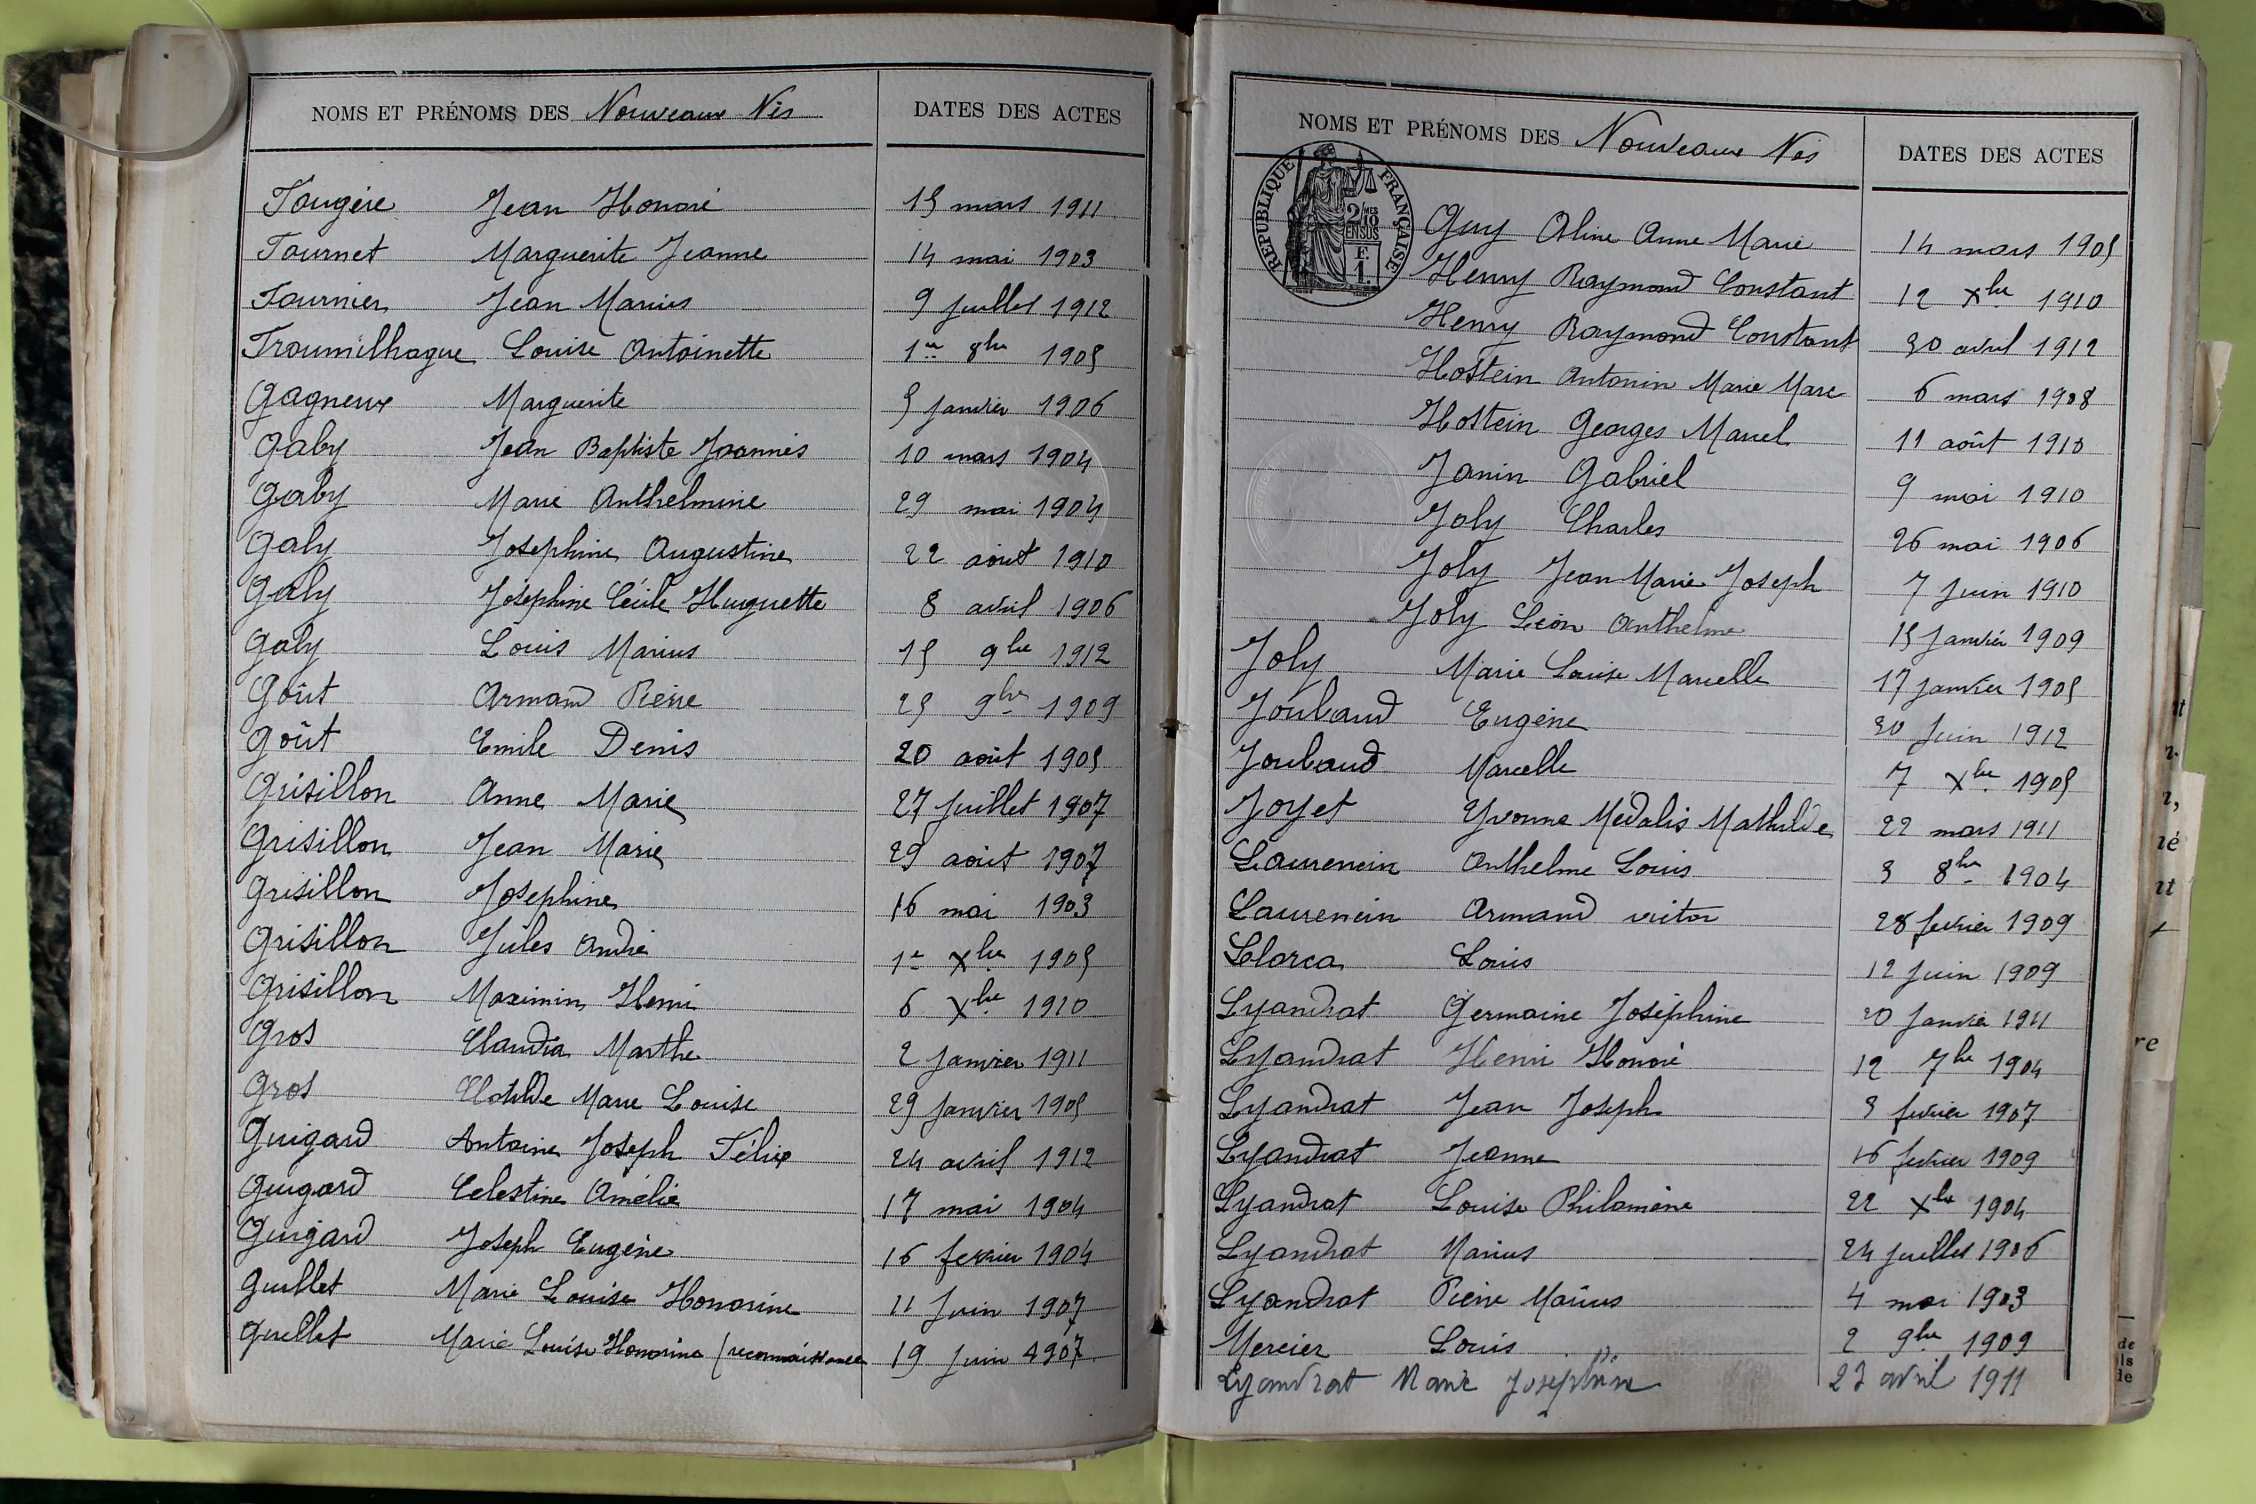 NOMS ET PRÉNOMS DES Nouveaux Nés DATES DES ACTES
Fougère Jean Honoré 15 mars 1911
Fournet Marguerite Jeanne 14 mai 1903
Fournier Jean Marius 9 Juillet 1912
Froumilhague Louise Antoinette 1er 8bre 1905
Gagneux Marguerite 5 Janvier 1906
Gaby Jean Baptiste Joannès 10 mars 1904
Gaby Marie Anthelmine 29 mai 1904
Galy Joséphine Augustine 22 août 1910
Galy Joséphine Cécile Huguette 8 avril 1906
Galy Louis Marius 15 9bre 1912
Goût Armand Pierre 25 9bre 1909
Goût Emile Denis 20 août 1905
Grisillon Anne Marie 27 Juillet 1907
Grisillon Jean Marie 29 août 1907
Grisillon Joséphine 16 mai 1903
Grisillon Jules André 1er Xbre 1905
Grisillon Maximin Henri 6 Xbre 1910
Gros Claudia Marthe 2 Janvier 1911
Gros Clotilde Marie Louise 29 Janvier 1905
Guigard Antoine Joseph Félix 24 avril 1912
Guigard Celestine Amélie 17 mai 1904
Guigard Joseph Eugène 16 fevrier 1904
Guillet Marie Louise Honorine 11 Juin 1907
Guillet Marie Louise Honorine (reconnaissance 19 Juin 1907
NOMS ET PRÉNOMS DES Nouveaux Nés DATES DES ACTES
RÉPUBLIQUE FRANÇAISE
2/10MES
EN SUS
F.
1.
Guy Aline Anne Marie 14 mars 1905
Henry Raymond Constant 12 Xbre 1910
Henry Raymond Constant 30 avril 1912
Hostein Antonin Marie Marc 6 mars 1908
Hostein Georges Marcel 11 août 1910
Janin Gabriel 9 mai 1910
Joly Charles 26 mai 1906
Joly Jean Marie Joseph 7 Juin 1910
Joly Léon Anthelme 15 Janvier 1909
Joly Marie Louise Marcelle 17 Janvier 1905
Joubaud Eugène 30 Juin 1912
Joubaud Marcelle 7 Xbre 1905
Joyet Yvonne Médalis Mathilde 22 mars 1911
Laurencin Anthelme Louis 3 8bre 1904
Laurencin Armand victor 28 fevrier 1909
Llorca Louis 12 Juin 1909
Lyandrat Germaine Joséphine 20 Janvier 1911
Lyandrat Henri Honoré 12 7bre 1904
Lyandrat Jean Joseph 3 fevrier 1907
Lyandrat Jeanne 16 fevrier 1909
Lyandrat Louise Philomène 22 Xbre 1904
Lyandrat Marius 24 Juillet 1906
Lyandrat Pierre Marius 4 mai 1903
Mercier Louis 2 9bre 1909
Lyandrat Marie Joséphine 23 avril 1911